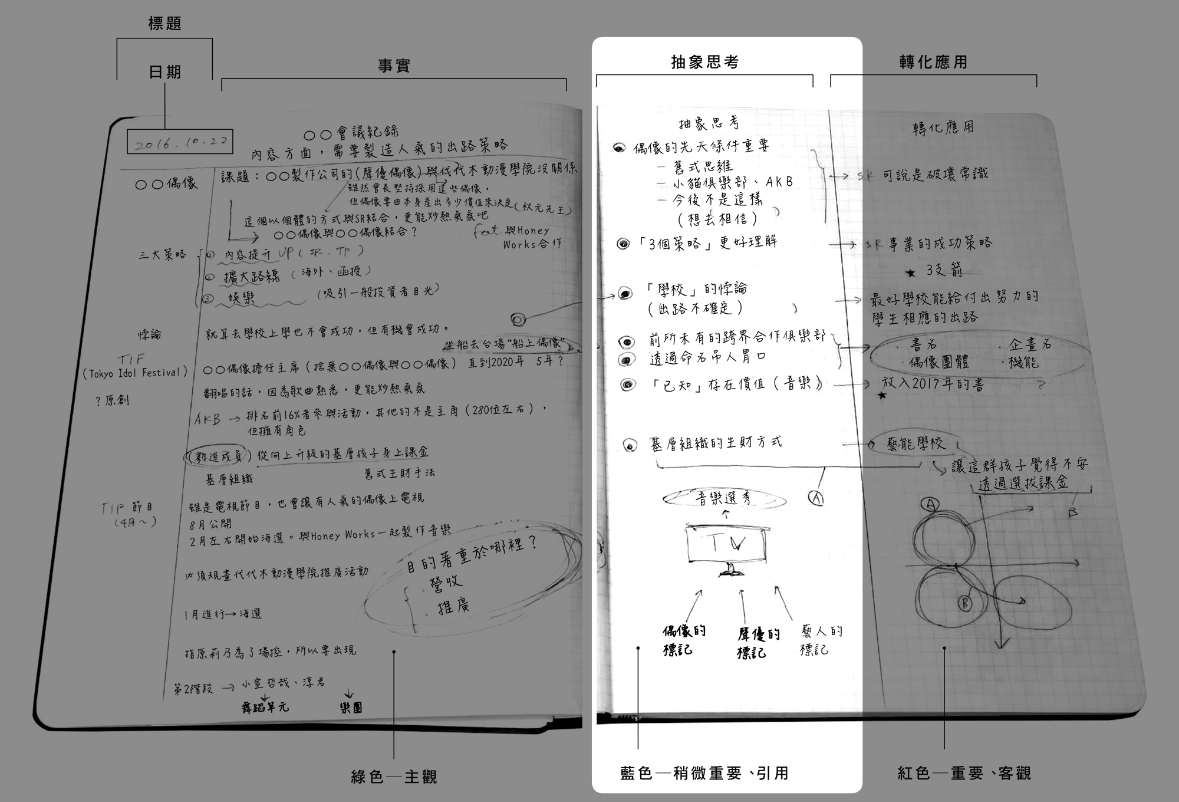 標題
日期
事實
抽象思考
轉化應用
2016.10.22
○○會議紀錄
內容方面，需要製造人氣的出路策略
○○偶像
課題：○○製作公司的(聲優偶像)與代代木動漫學院沒關係
雖然會長堅持採用這些偶像，
但偶像要由本身產出多少價值來決定(秋元先生)
這個以個體的方式與SR結合，更能炒熱氣氛吧
○○偶像與○○偶像結合？
feat.與Honey
Works合作
三大策略
① 內容提升 UP (SR、TP)
② 擴大路線 (海外、函授)
③ 娛樂 (吸引一般投資者目光)
悖論
就算去學校上學也不會成功，但有機會成功。
坐船去台場"船上偶像"
TIF
(Tokyo Idol Festival)
○○偶像擔任主席(捨棄○○偶像與○○偶像) 直到2020年 5年？
？原創
翻唱的話，因為歌曲熟悉，更能炒熱氣氛
AKB → 排名前16%者參與活動，其他的不是主角(280位左右)，
但擁有角色
從向上升級的基層孩子身上課金
基層組織
舊式生財手法
TIF 節目
(4月～)
雖是電視節目，也會讓有人氣的偶像上電視
8月公開
2月左右開始海選。與Honey Works一起製作音樂
必須規畫代代木動漫學院推廣活動
目的著重於哪裡？
．營收
．推廣
1月進行→海選
指原莉乃為了場控，所以要出現
第2階段 → 小室哲哉、淳君
舞蹈單元
樂團
抽象思考
偶像的先天條件重要
－舊式思維
－小貓俱樂部、AKB
－今後不是這樣
(想去相信)
「3個策略」更好理解
「學校」的悖論
(出路不確定)
前所未有的跨界合作俱樂部
透過命名吊人胃口
「已知」存在價值(音樂)
基層組織的生財方式
A
音樂選秀
TV
偶像的
標記
聲優的
標記
藝人的
標記
轉化應用
SR 可說是破壞常識
SR 事業的成功策略
★ 3支箭
最好學校能給付出努力的
學生相應的出路
．書名 ．企畫名
．偶像團體 ．機能
放入2017年的書 ？
★
藝能學校
讓這群孩子覺得不安
透過選拔課金
B
A
B
綠色─主觀
藍色─稍微重要、引用
紅色─重要、客觀